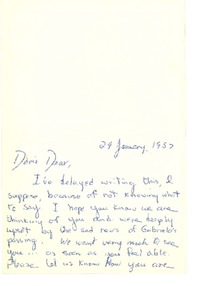 29 January, 1957
Doris Dear,
I've delayed writing this, I
suppose, because of not knowing what
to say. I hope you know we are
thinking of you and were deeply
upset by the sad news of Gabriel's
passing. We want very much to see
you... as soon as you feel able.
Please let us know how you are